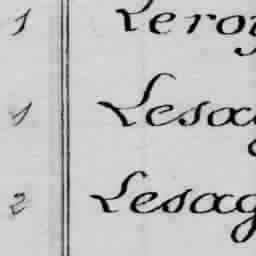 1 Leroy
1 Lesag
2 Lesag